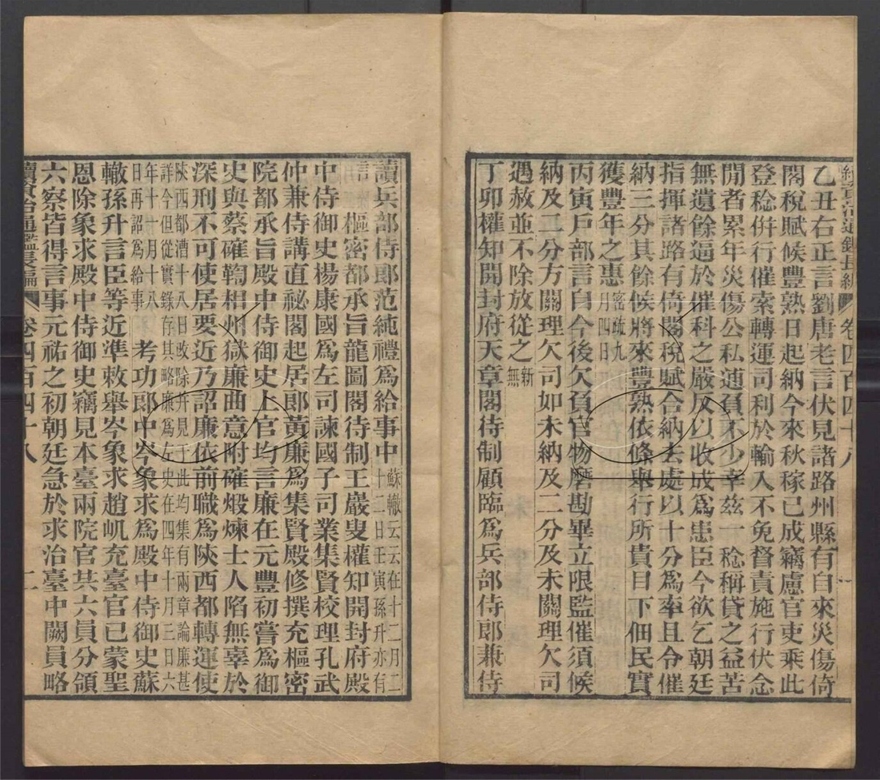 續資治通鑑長編 卷四百四十八
乙丑右正言劉唐老言伏見諸路州縣有自來災傷倚
閣稅賦候豐熟日起納今來秋稼已成竊慮官吏乘此
登稔併行催索轉運司利於輸入不免督責施行伏念
閒者累年災傷公私逋負不少幸茲一稔稱貸之益苦
無遺餘逼於催科之嚴反以收成爲患臣今欲乞朝廷
指揮諸路有倚閣稅賦合納去處以十分爲率且令催
納三分其餘候將來豐熟依條舉行所貴目下佃民實
獲豐年之惠密疏九月四日
丙寅戶部言自今後欠負官物磨勘畢立限監催須候
納及二分方關理欠司如未納及二分及未關理欠司
遇赦並不除放從之新無
丁卯權知開封府天章閣待制顧臨爲兵部侍郎兼侍
讀兵部侍郎范純禮爲給事中蘇轍云云在十二月二十二日壬寅孫升亦有
言樞密都承旨龍圖閣待制王巖叟權知開封府殿
中侍御史楊康國爲左司諫國子司業集賢校理孔武
仲兼侍講直祕閣起居郎黃廉爲集賢殿修撰充樞密
院都承旨殿中侍御史上官均言廉在元豐初嘗爲御
史與蔡確鞫相州獄廉曲意附確煅煉士人陷無辜於
深刑不可使居要近乃詔廉依前職爲陝西都轉運使
陝西都漕十八日改除并見于此均集有兩章論廉甚詳今但從實錄存其略廉爲左史在四年十月三日六年十一月十八日再詔爲給事
考功郎中岑象求爲殿中侍御史蘇
轍孫升言臣等近準敕舉岑象求趙屼充臺官已蒙聖
恩除象求殿中侍御史竊見本臺兩院官共六員分領
六察皆得言事元祐之初朝廷急於求治臺中闕員略
續資治通鑑長編 卷四百四十八 二